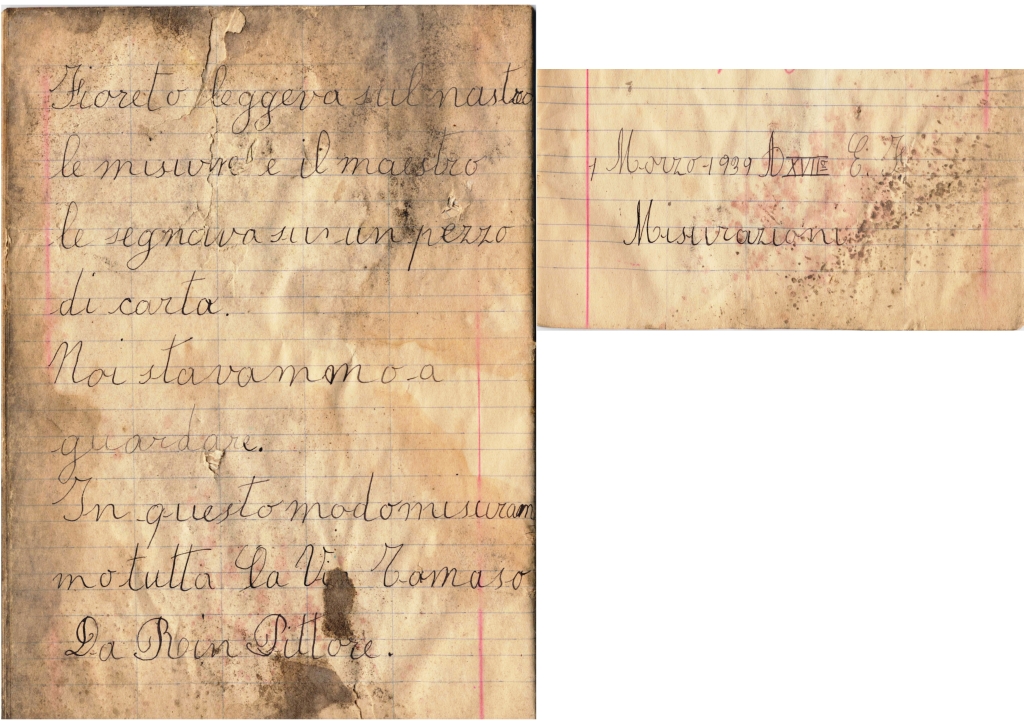 Fioreto leggeva sul nastro
le misure e il maestro
le segnava su un pezzo
di carta.
Noi stavammo a
guardare.
In questo modo misuram
mo tutta la Via Tomaso
Da Rin Pittore.
1 Marzo-1939 A XVII E. F.
Misurazioni